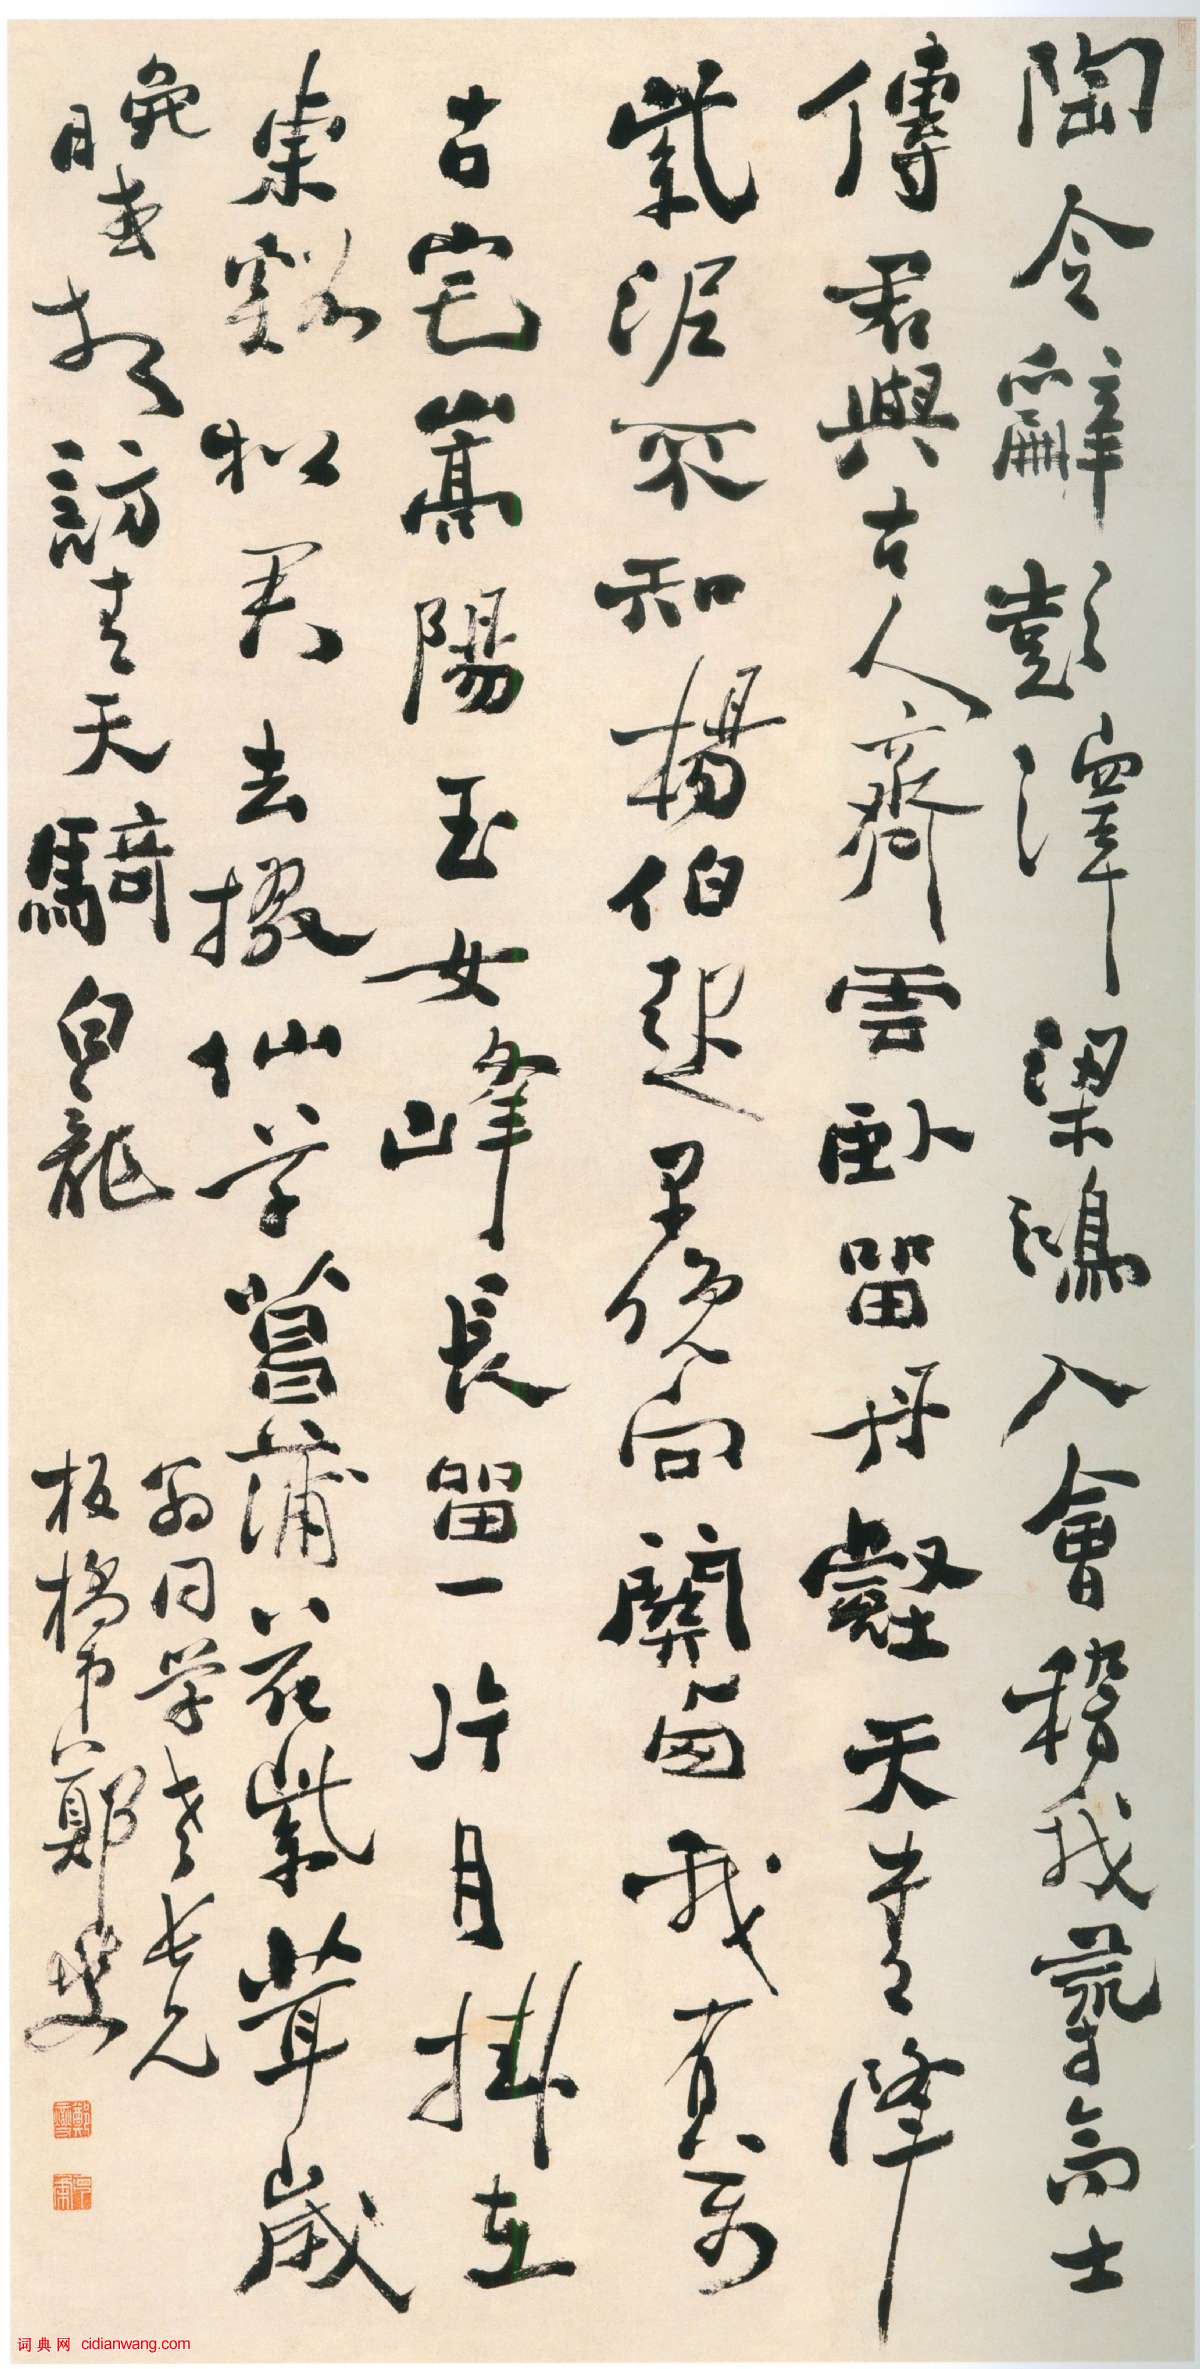 陶令辭彭澤梁鴻入會稽我尋高士
傳君與古人齊雲臥留丹壑天書降
紫泥不知楊伯起早晚向關西我有萬
古宅嵩陽玉女峰長留一片月掛在
東谿松君去掇仙草菖蒲花紫茸歲
晚或相訪青天騎白龍
翁同學老長兄
板橋弟鄭燮
词典网 cidianwang.com